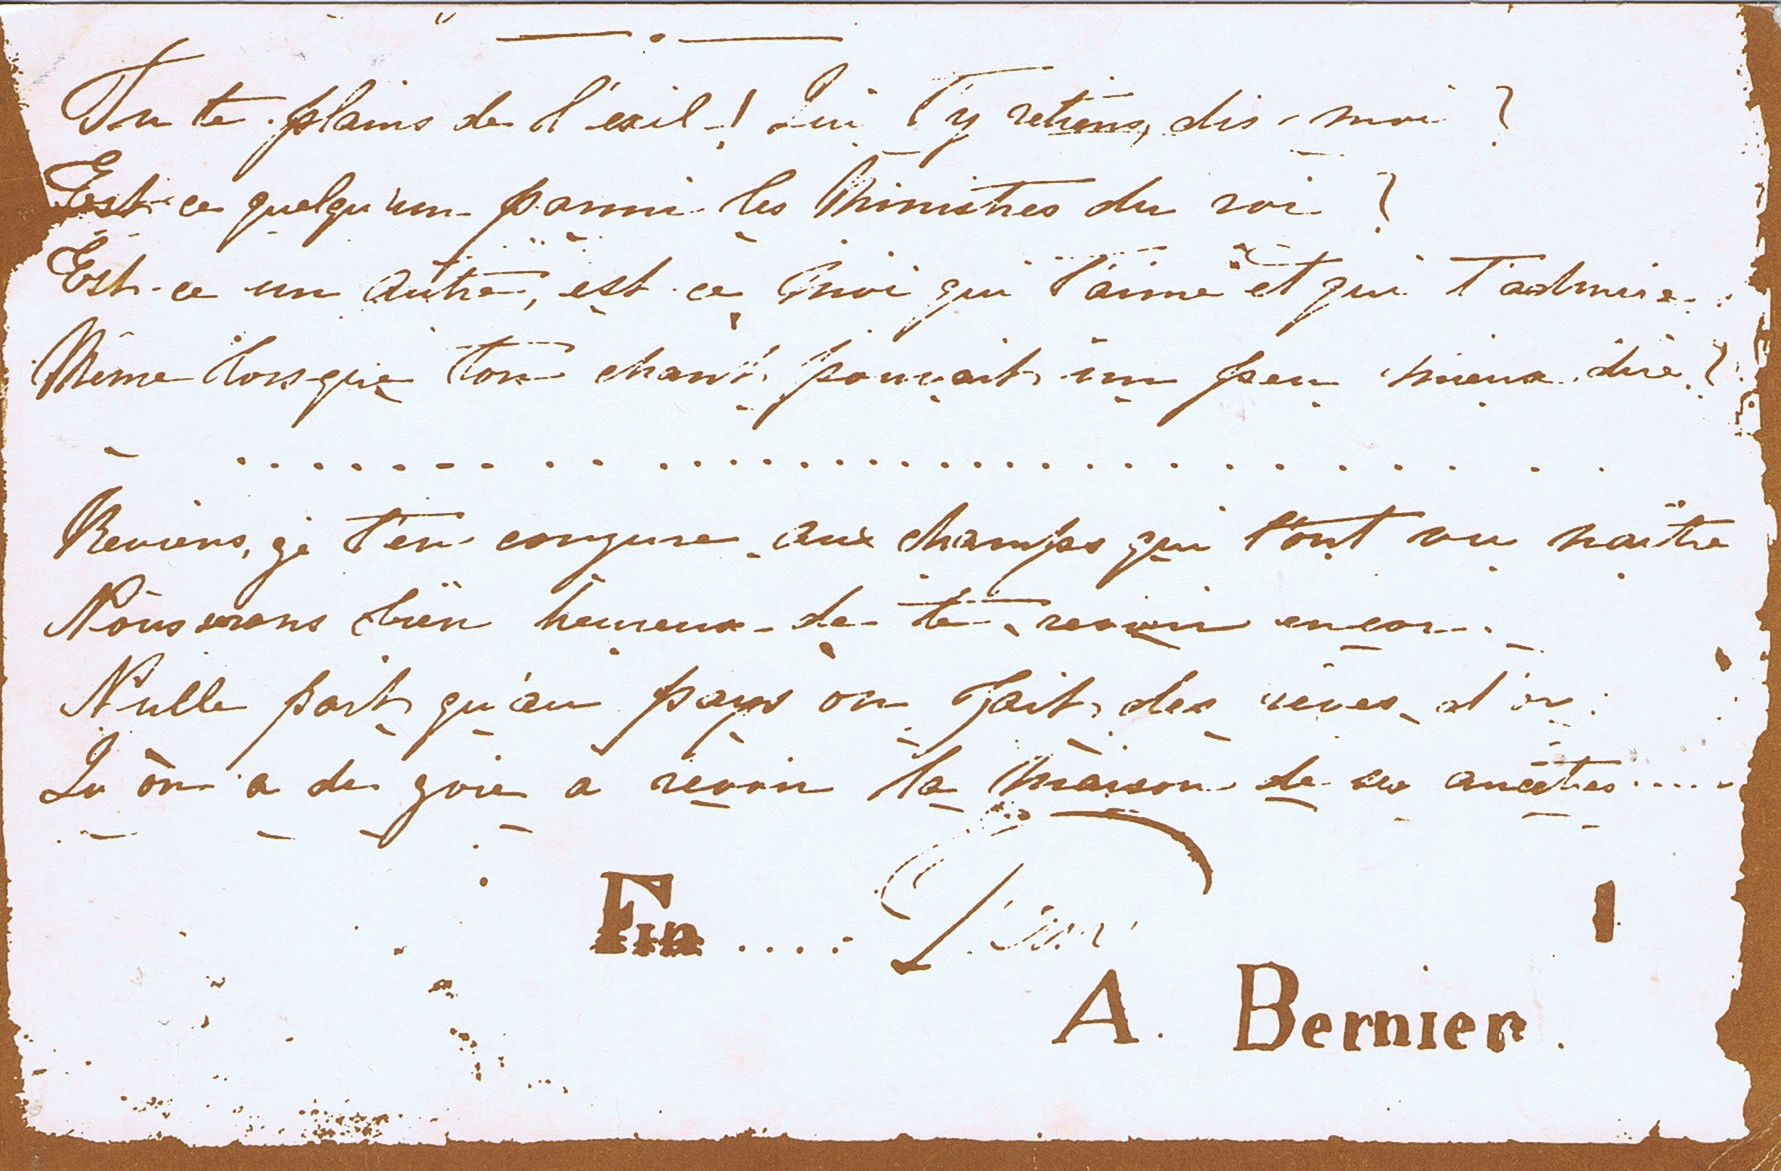 Tu te plains de l'exil ! Qui t'y retiens, dis-moi ?
Est-ce quelqu'un parmi les Ministres du roi ?
Est-ce un autre, est-ce moi qui t'aime et qui t'admire
Même lorsque ton chant pouvait un peu mieux dire ?
Reviens, je t'en conjure aux champs qui t'ont vu naître
Nous serons bien heureux de te revoir encor.
Nulle part qu'au pays on fait des rêves d'or.
Qu'on a de joie a revoir la maison de ses ancêtres.....
Fin ....
A. Bernier.